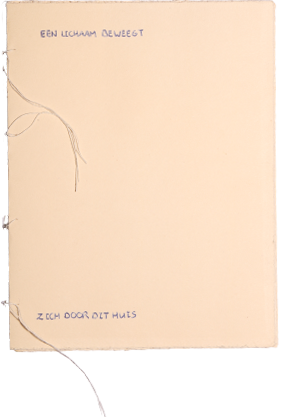 EEN LICHAAM BEWEEGT
ZICH DOOR DIT HUIS